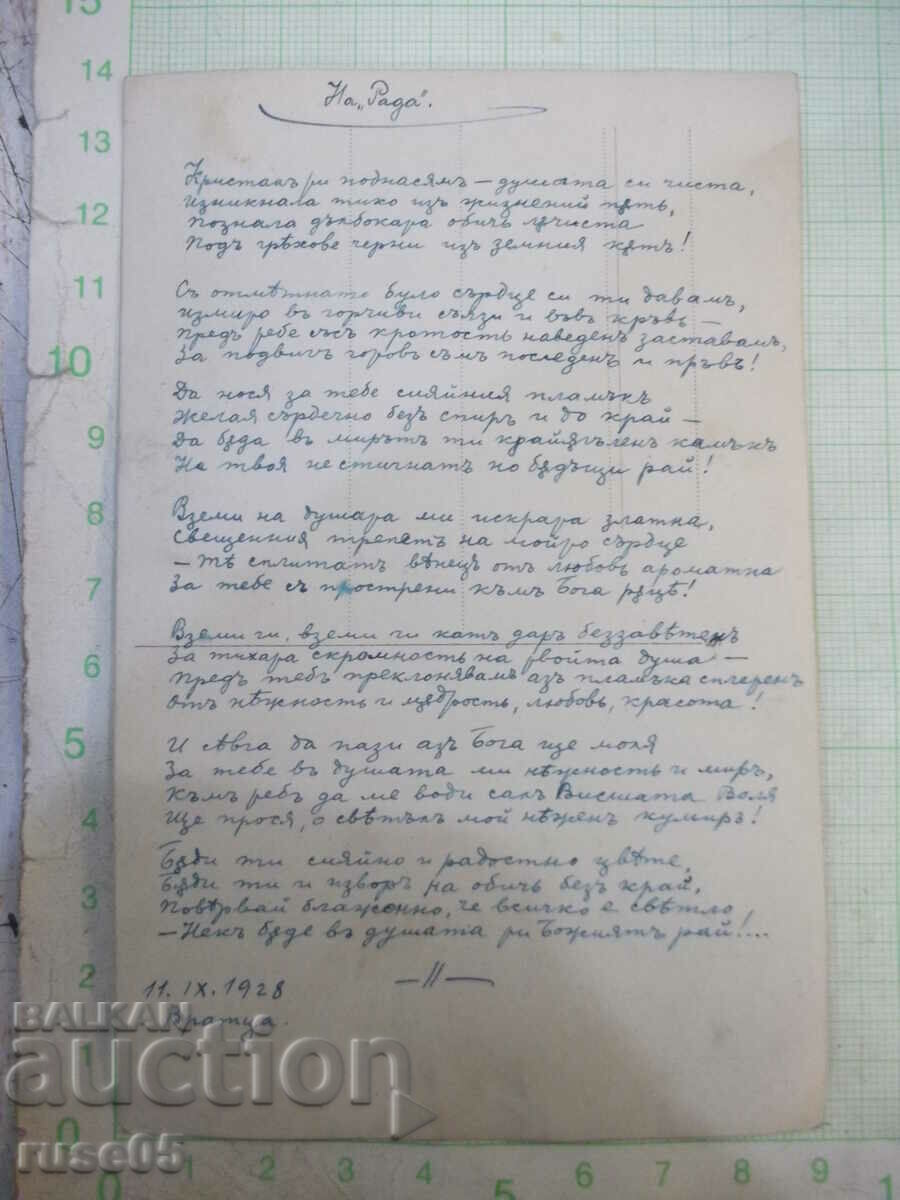 На „Рада“.
Кристалъ ти поднасямъ – душата си чиста,
изникнала тихо изъ жизнений пѫть,
познала дълбоката обичь лѫчиста
Подъ грѣхове черни изъ земния кѫтъ!
Съ отметнато було сърдце си ти давамъ,
измито въ горчиви сълзи и въвъ кръвь –
предъ тебе съсъ кротость наведенъ заставамъ,
За подвигъ готовъ съмъ последенъ и пръвъ!
Да нося за тебе сияйния пламъкъ
Желая сърдечно безъ спиръ и до край –
Да бѫда въ мирътъ ти крайѫгъленъ камъкъ
На твоя не стигнатъ но бѫдѫщи рай!
Вземи на душата ми искрата златна,
свещенния трепетъ на мойто сърдце
– Тѣ сплитатъ вѣнецъ отъ любовь ароматна
За тебе съ прострени къмъ Бога рѫцѣ!
Вземи ги, вземи ги катъ даръ беззавѣтенъ
За тихата скромность на твойта душа –
Предъ тебъ преклонявамъ азъ пламъка сплетенъ
отъ нѣжность и мѫдрость, любовь, красота!
И явга да пази азъ Бога ще моля
За тебе въ душата ми нѣжность и миръ,
Къмъ тебъ да ме води сакъ Висшата Воля
Ще прося, о свѣтълъ мой нѣженъ кумиръ!
Бѫди ти сияйно и радостно цвѣте,
Бѫди ти и изворъ на обичь безъ край,
Повѣрвай блаженно, че всичко е свѣтло
– Некъ бѫде въ душата ти Божиятъ рай!...
—//—
11. IX. 1928
Вратца.
BALKAN
auction
ruse05
15
14
13
12
11
10
9
8
7
6
5
4
3
2
1
0
0 1 2 3 4 5 6 7 8 9 1